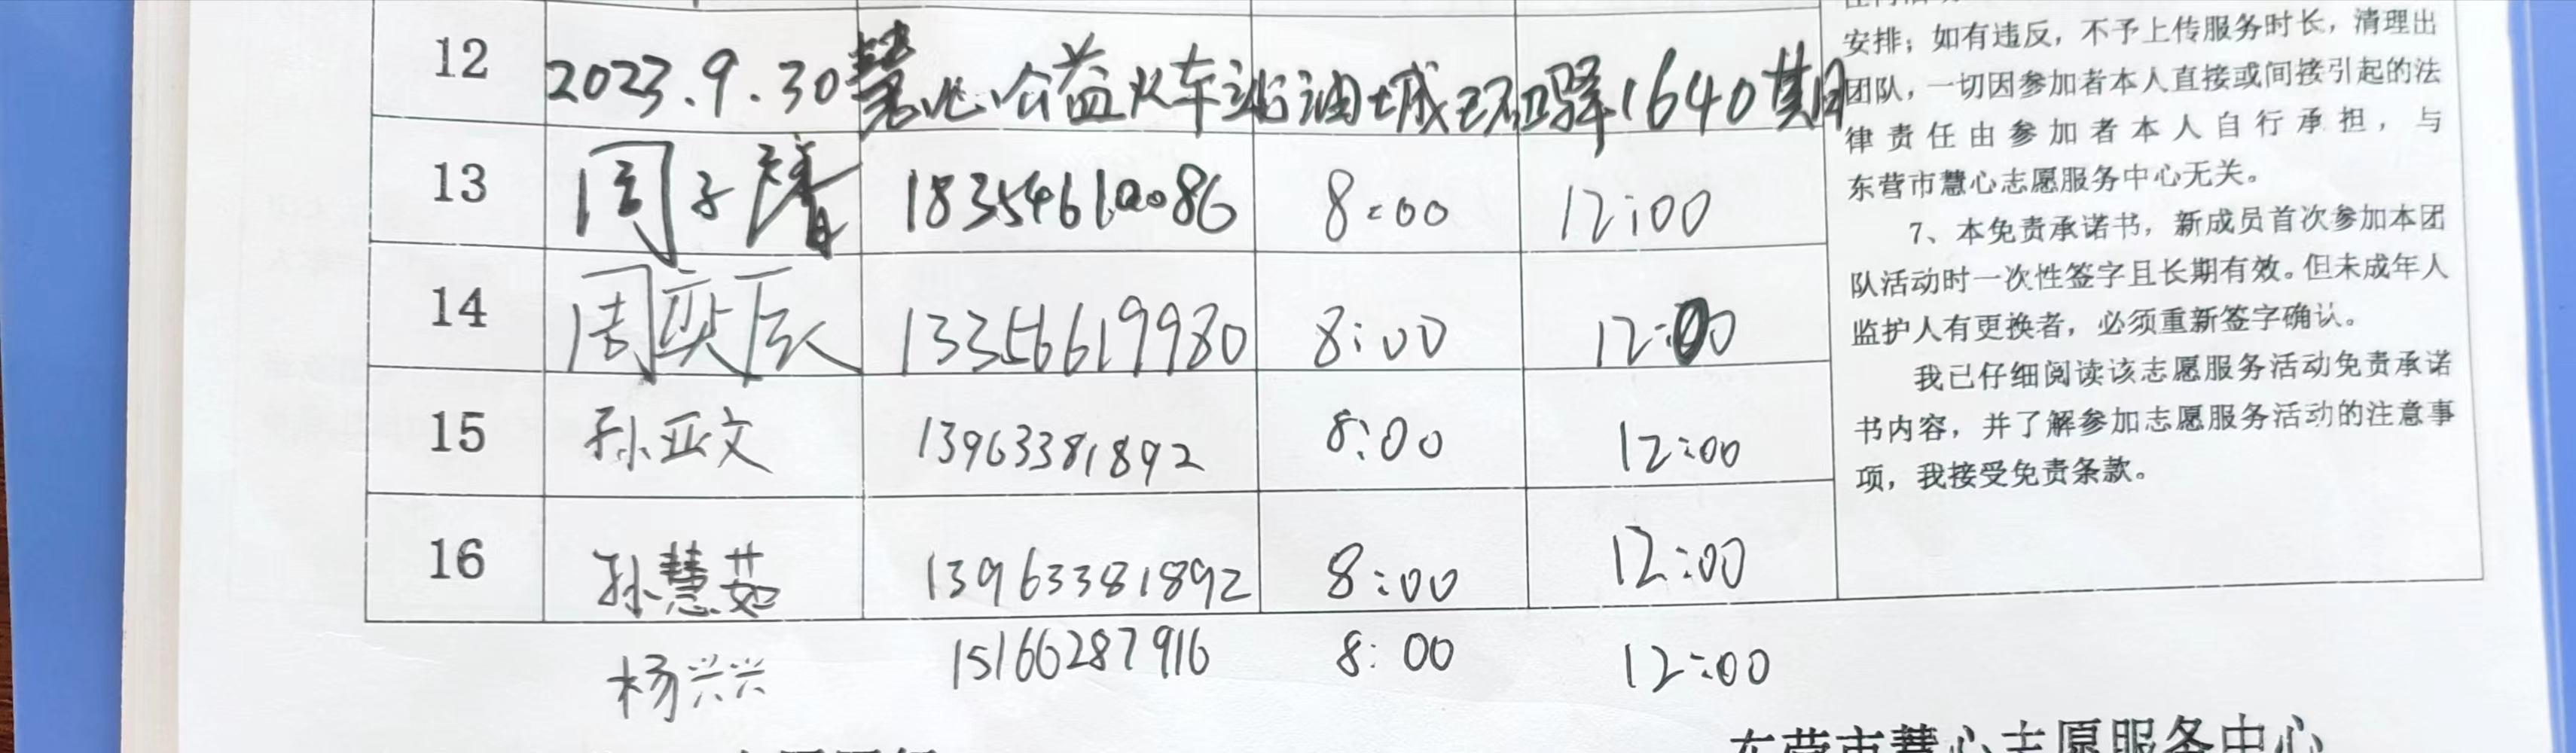 12 2023.9.30慧心公益火车站油城环驿1640期
13 周子馨 18354610086 8:00 12:00
14 周奕辰 13356619980 8:00 12:00
15 孙亚文 13963381892 8:00 12:00
16 孙慧茹 13963381892 8:00 12:00
杨兴兴 15166287916 8:00 12:00
安排；如有违反，不予上传服务时长，清理出
团队，一切因参加者本人直接或间接引起的法
律责任由参加者本人自行承担，与
东营市慧心志愿服务中心无关。
7、本免责承诺书，新成员首次参加本团
队活动时一次性签字且长期有效。但未成年人
监护人有更换者，必须重新签字确认。
我已仔细阅读该志愿服务活动免责承诺
书内容，并了解参加志愿服务活动的注意事
项，我接受免责条款。
东营市慧心志愿服务中心